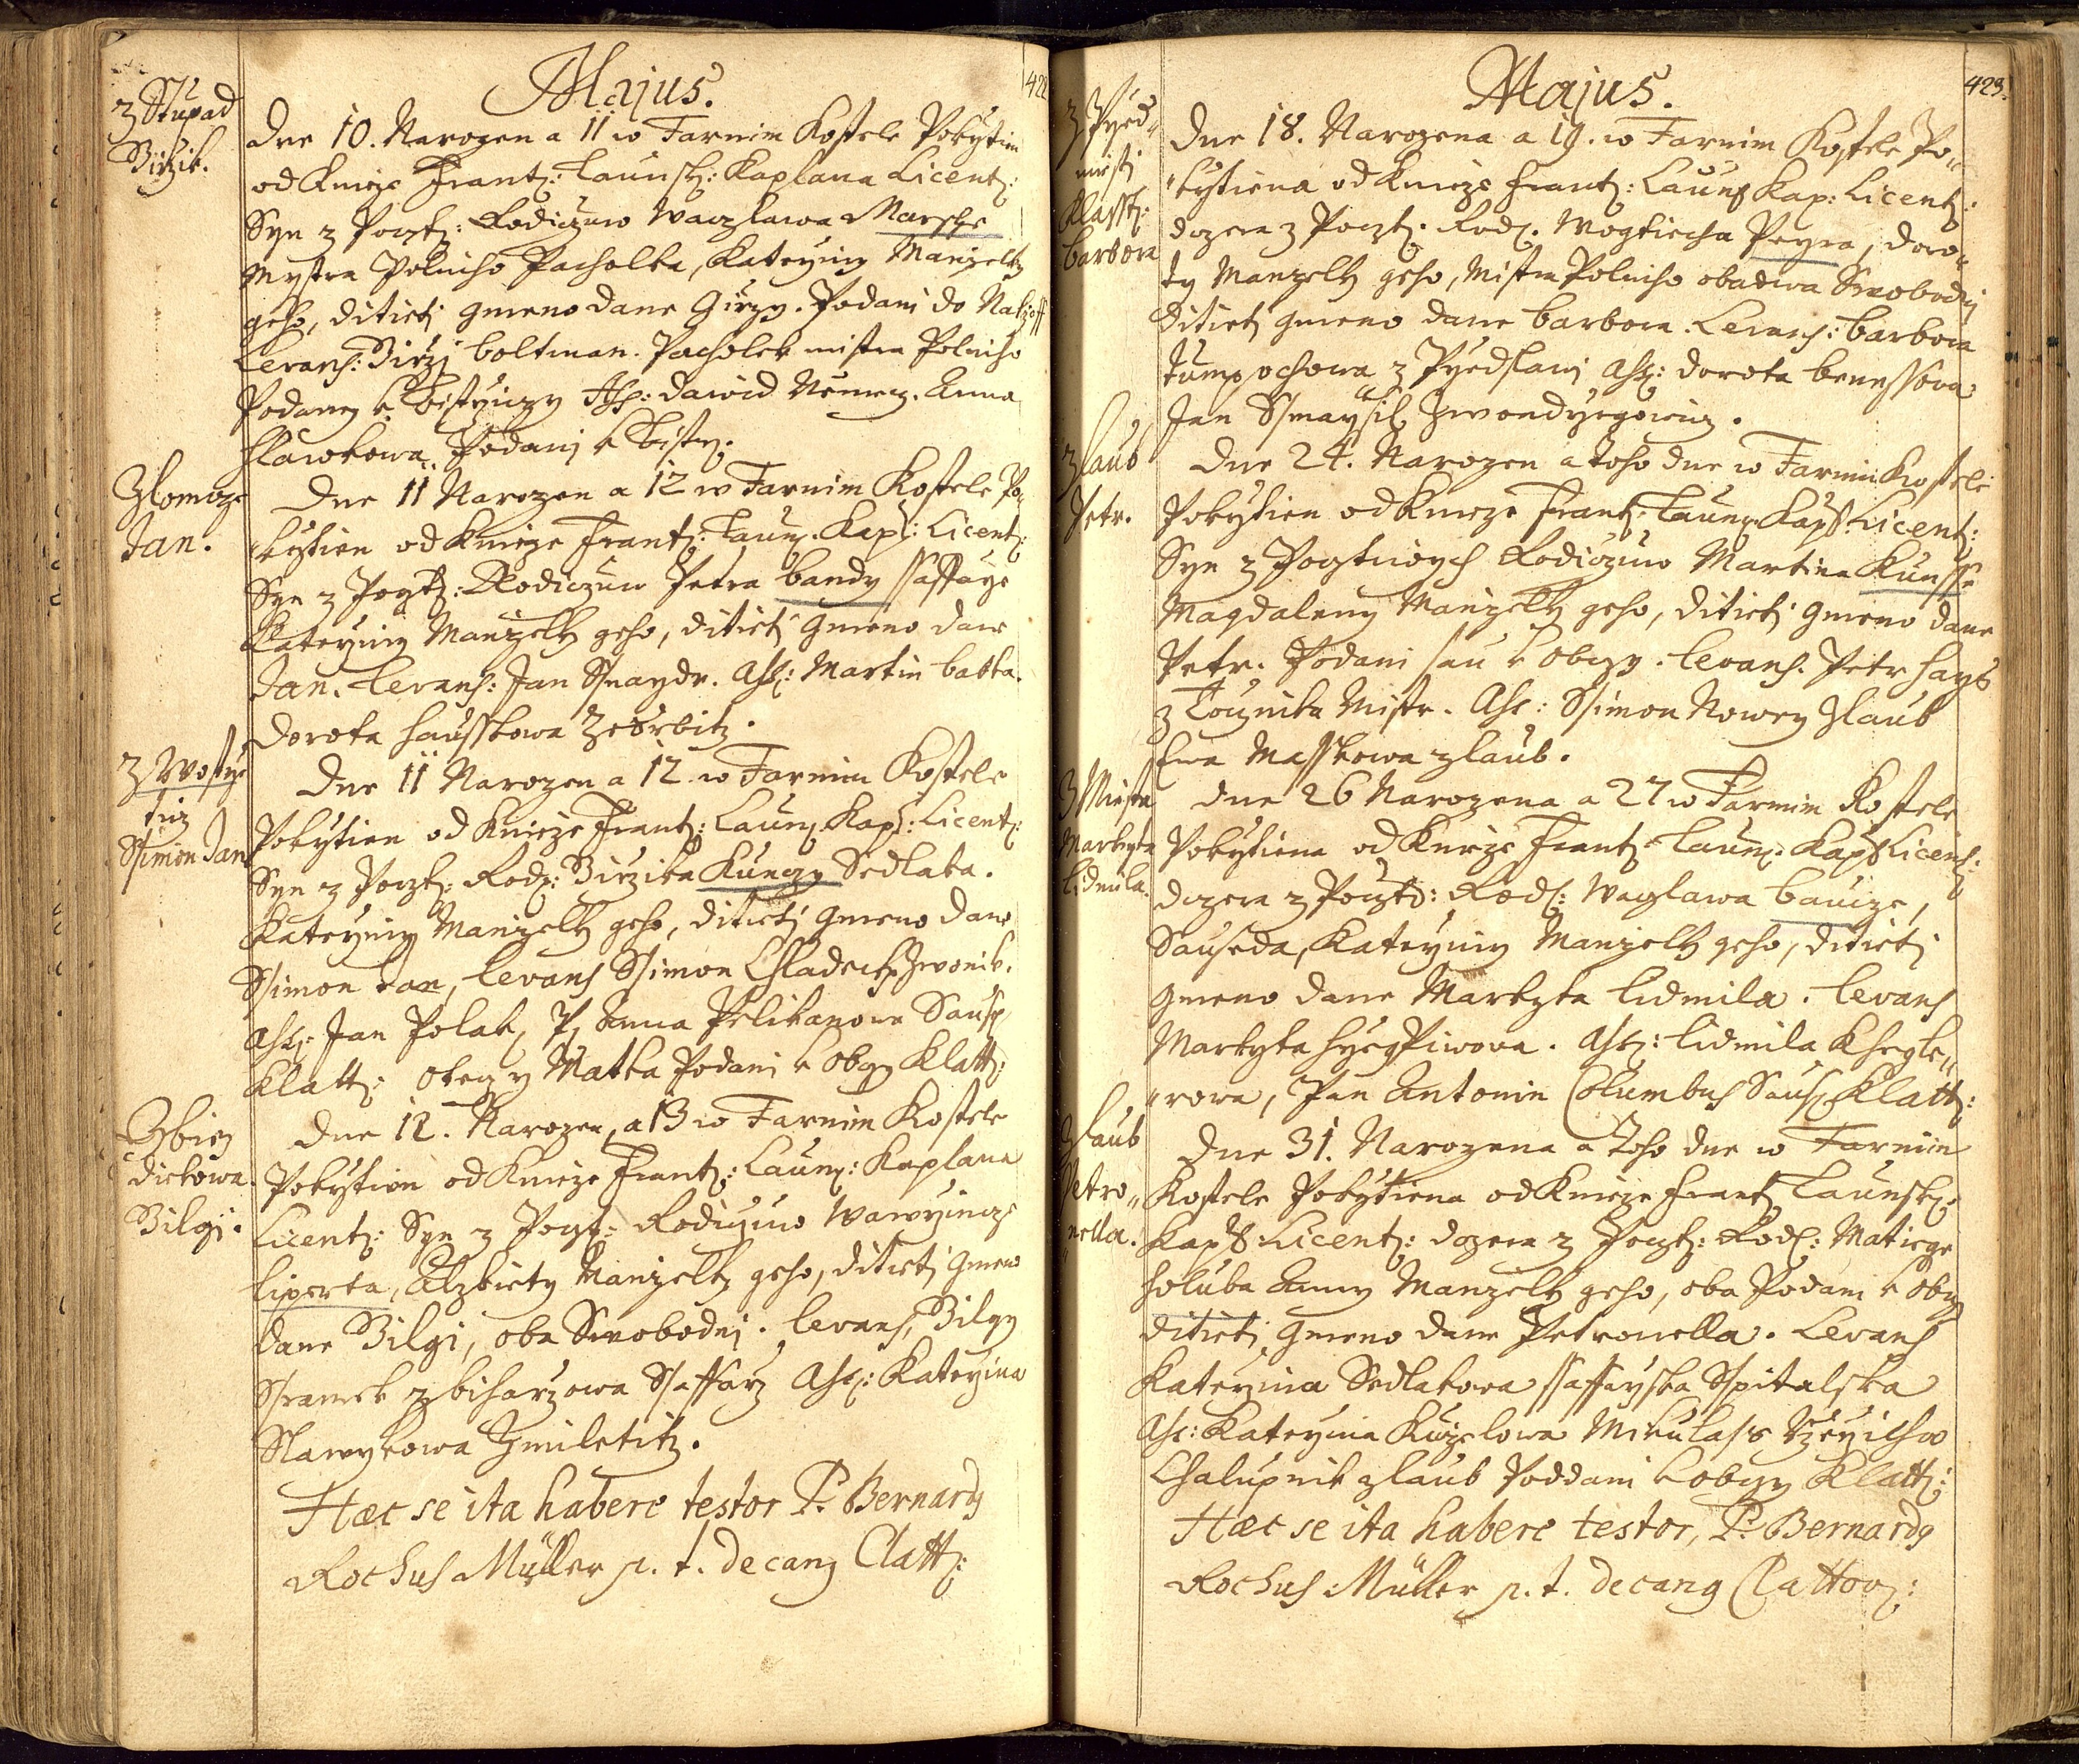 422
Majus.
z Stupad
Girzik.
dne 10. Narozen a 11 w Farnim Kostele Pokrztien
od Knieze Frantz: Launsk: Kaplana Licent:
Syn z Poczt: Rodiczuw Waczlawa Marsche
Mystra Polniho Pacholka, Katerziny Manzelky
geho, ditieti gmeno dane Girzy. Podani do Nalzoff
Levans: Girzi boltman. Pacholek mistra Polniho
Podany k Bistrziczy Ass: dawid Nemecz. Anna
Hlawkowa Podani k Bistrz.
Zlomcze
Jan.
Dne 11 Narozen a 12 w Farnim Kostele Po-
krztien od Knieze Frantz: Launs. Kapl: Licent:
Syn z Poczt: Rodiczuw Petra bandy ssaffarze
Katerziny Manzelky geho, ditieti gmeno dane
Jan. Levans: Jan Ssnaydr. Ass: Martin babka.
dorota hausskowa
z Wostrze
titz
Ssimon Jan
Dne 11 Narozen a 12 w Farnim Kostele
Pokrztien od Knieze Frantz: Launs. Kapl: Licent:
Syn z Poczt: Rod: Girzika Kunczy Sedlaka.
Katerziny Manzelky geho, ditieti gmeno dane
Ssimon Jan, Levans Ssimon Chladek Zwonik.
Ass: Jan Polak, P. Anna Pelikanowa Saus.
Klatt: Otecz y Matka Podani k Obczy Klatt:
dikowa.
Gilgi.
Dne 12. Narozen, a 13 w Farnim Kostele
Pokrztien od Knieze Frantz: Launs: Kaplana
Licent: Syn z Poczt: Rodiczuw Wawrzincze
liperta, Alzbiety Manzelky geho, ditieti gmeno
dane Gilgi, oba Swobodni. Levans, Gilgy
Sramek z biharzowa Ssaffarz Ass: Katerzina
Slawykowa Zmiletitz.
Hæc se ita habere testor P. Bernardg
Rochus Müller p. t. decang Clatt:
423.
Majus.
z Przed-
miesti
Klasst:
barbora
Dne 18. Narozena a 19. w Farnim Kostele Po-
krztiena od Knieze Frantz: Launs Kap: Licent:
dczera z Poczt: Rod: Wogtiecha Peyra, doro-
ty Manzelky geho, Mistra Polniho obadwa Swobodni
Ditieti gmeno dane barbora. Levans: barbora
z Przedslawi Ass: dorota benessowa
Jan
z laub
Petr.
Dne 24. Narozen a toho dne w Farnim Kostele
Pokrztien od Knieze Frantz: Launs Kapl: Licent:
Syn z Pocztiwych Rodiczuw Martina Kunsse
Magdaleny Manzelky geho, ditieti gmeno dane
Petr. Podani sau k Obczy. Levans. Petr hays
z Mistr. Ass: Ssimon Nowey z laub
Ewa Masskowa z laub.
z Miesta
Markyta
Lidmila.
Dne 26 Narozena a 27 w Farnim Kostele
Pokrztiena od Knieze Frantz Launs. Kapl Licent:
dczera z Pocztiv: Rod: Waczlawa bawze,
Sauseda, Katerziny Manzelky geho, ditieti
gmeno dane Markyta Lidmila. Levans
Markyta . Ass: Lidmila Khegle-
rowa, Pan Antonin Columbus Saus. Klatt:
z laub
Petro-
nella.
Dne 31. Narozena a toho dne w Farnim
Kostele Pokrztiena od Knieze Frantz Launsk:
Kapl: Licent: dczera z Poczt: Rod: Matiege
holuba Anny Manzelky geho, oba Podani k Obczy
ditieti gmeno dane Petronella. Levans
Katerzina Sedlakowa ssaffarzka Sspitalska
Ass: Katerzina Kuzelowa Mikulass
Chalupnik z laub Poddani k obczy Klatt:
Hæc se ita habere testor, P. Bernardg
Rochus Müller p. t. decang Clattov: